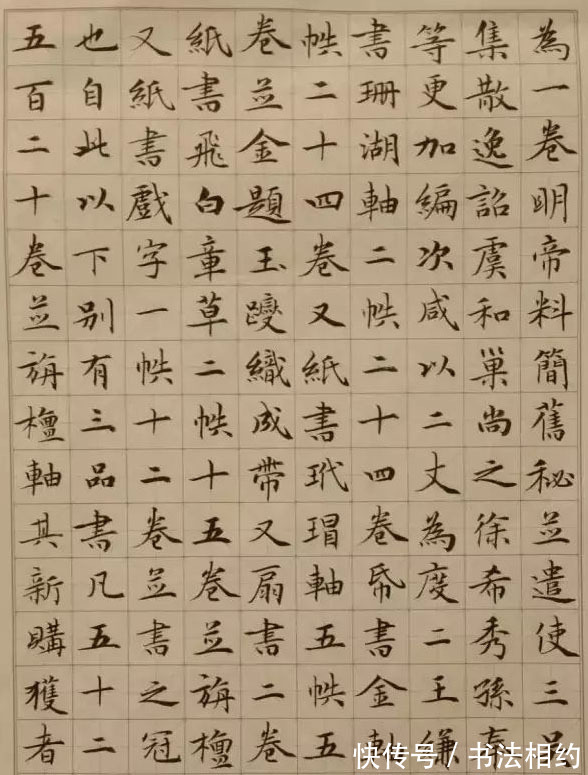 為一卷明帝料簡舊秘並遣使三
集散逸詔虞和巢尚之徐希秀孫奉
等更加編次咸以二丈為度二王縑
書珊湖軸二帙二十四卷帋書金軸
帙二十四卷又紙書玳瑁軸五帙五
卷並金題玉躞織成帶又扇書二卷
紙書飛白章草二帙十五卷並旃檀
又紙書戲字一帙十二卷並書之冠
也自此以下別有三品書凡五十二
五百二十卷並旃檀軸其新購獲者
快传号 / 书法相约